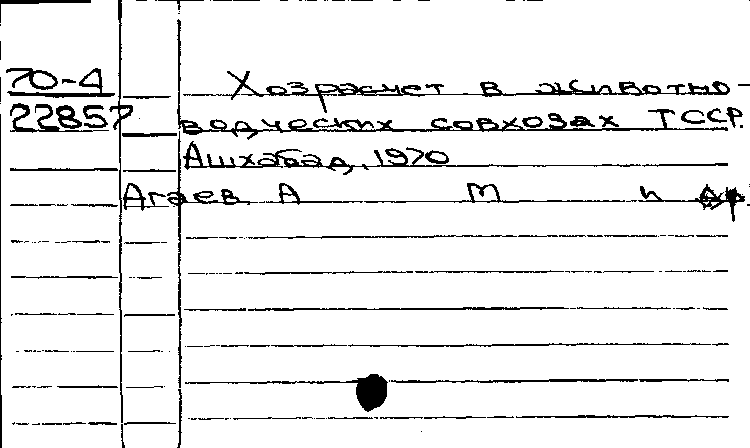 70-4 Хозрасчет в животно-
22857 водческих совхозах ТССР.
Ашхабад, 1970
Агаев А М и др